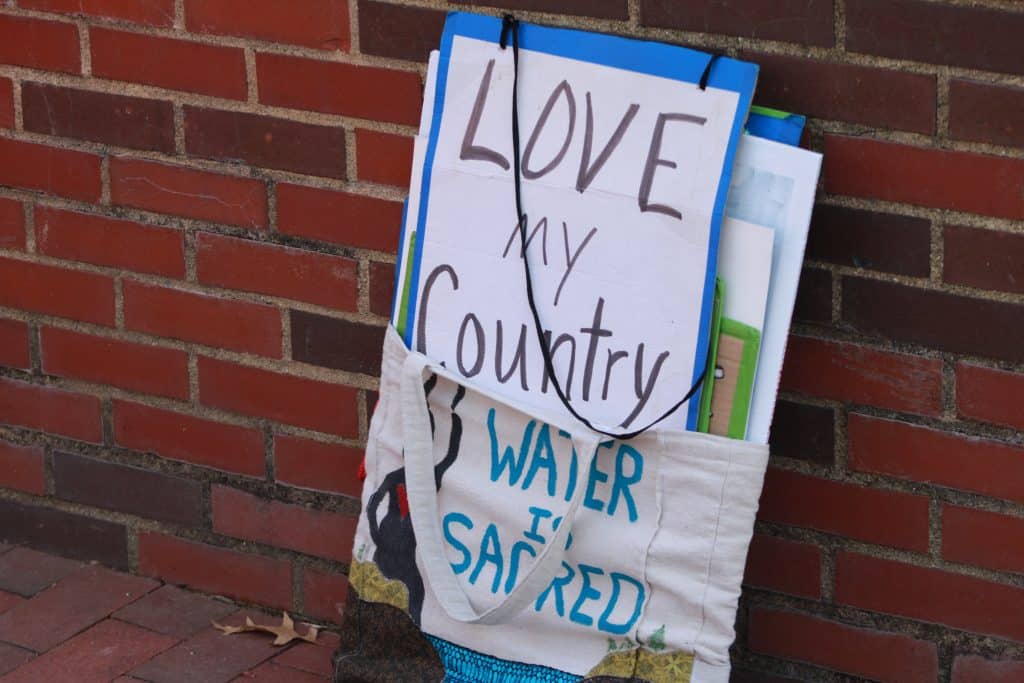 LOVE
my
Country
WATER
IS
SACRED